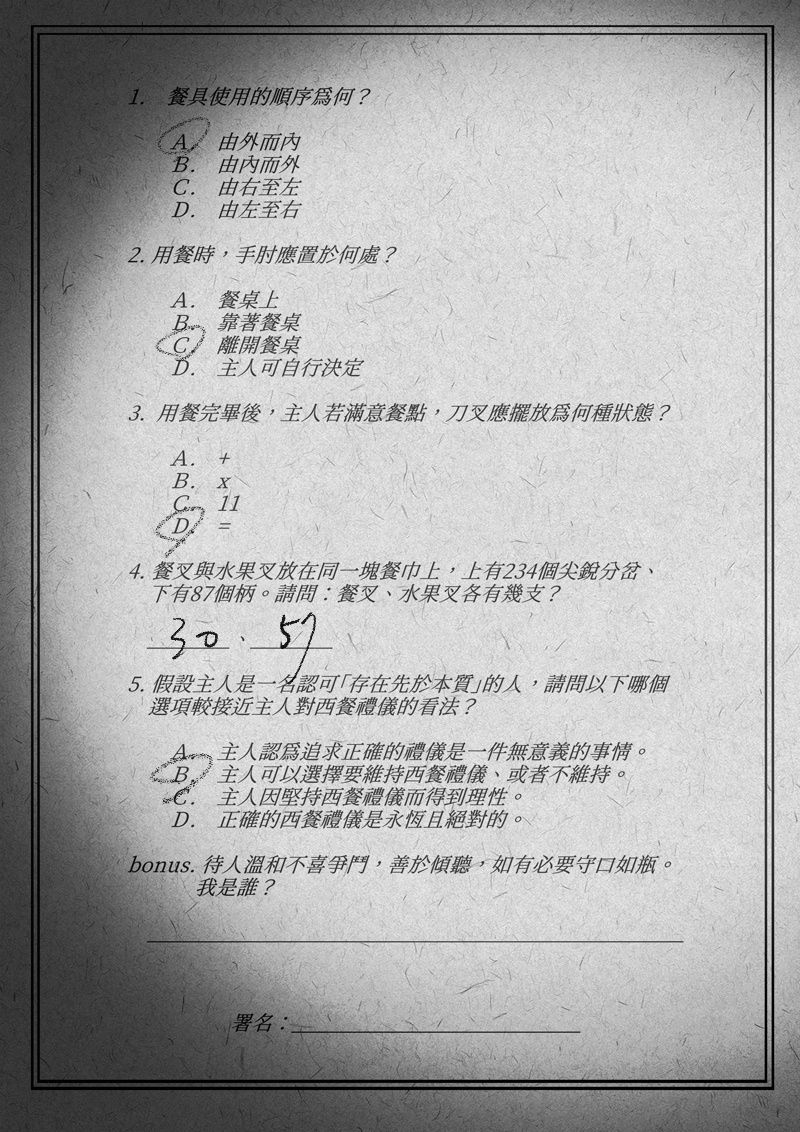 1. 餐具使用的順序爲何？
A. 由外而內
B. 由內而外
C. 由右至左
D. 由左至右
2. 用餐時，手肘應置於何處？
A. 餐桌上
B. 靠著餐桌
C. 離開餐桌
D. 主人可自行決定
3. 用餐完畢後，主人若滿意餐點，刀叉應擺放爲何種狀態？
A. +
B. x
C. 11
D. =
4. 餐叉與水果叉放在同一塊餐巾上，上有234個尖銳分岔、
下有87個柄。請問：餐叉、水果叉各有幾支？
30、57
5. 假設主人是一名認可「存在先於本質」的人，請問以下哪個
選項較接近主人對西餐禮儀的看法？
A. 主人認爲追求正確的禮儀是一件無意義的事情。
B. 主人可以選擇要維持西餐禮儀、或者不維持。
C. 主人因堅持西餐禮儀而得到理性。
D. 正確的西餐禮儀是永恆且絕對的。
bonus. 待人溫和不喜爭鬥，善於傾聽，如有必要守口如瓶。
我是誰？
署名：